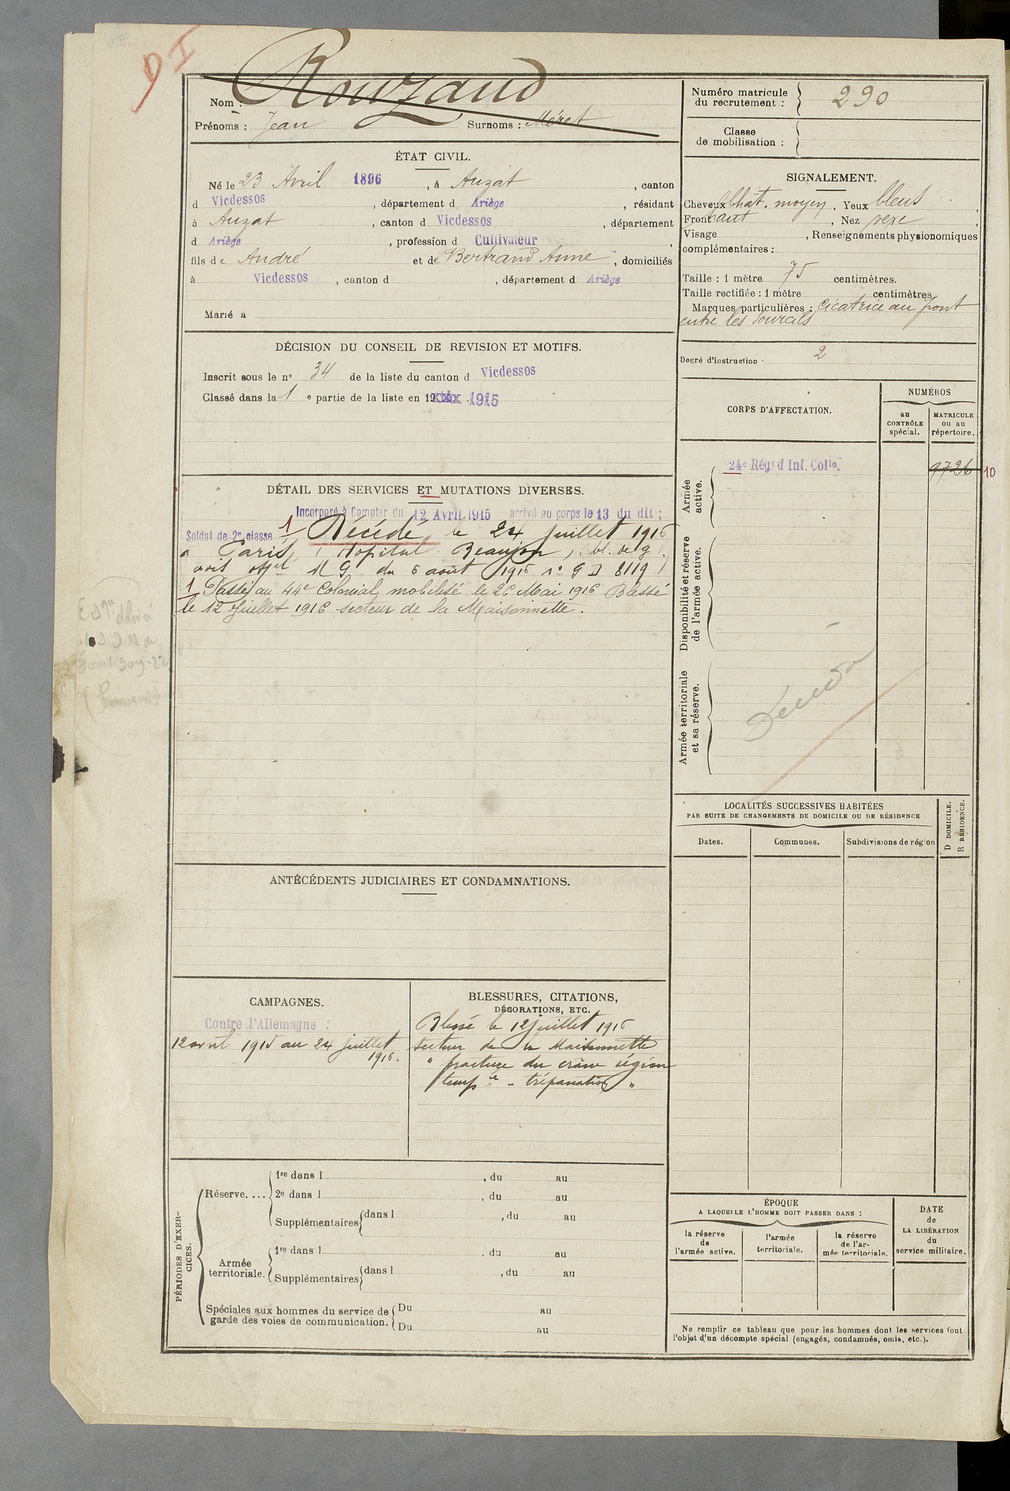 D I
Nom : Rouzaud
Prénoms : Jean Surnoms : Méret
Numéro matricule du recrutement : 290
Classe de mobilisation :
ÉTAT CIVIL.
Né le 23 Avril 1896, à Auzat, canton
d Vicdessos, département d Ariège, résidant
à Auzat, canton d Vicdessos, département
d Ariège, profession d Cultivateur,
fils de André et de Bertrand Anne, domiciliés
à Vicdessos, canton d , département d Ariège
Marié à
SIGNALEMENT.
Cheveux chât. moyen, Yeux bleus,
Front haut, Nez vexe,
Visage , Renseignements physionomiques
complémentaires :
Taille : 1 mètre 75 centimètres.
Taille rectifiée : 1 mètre centimètres
Marques particulières : cicatrice au front
entre les sourcils
Degré d'instruction : 2
DÉCISION DU CONSEIL DE REVISION ET MOTIFS.
Inscrit sous le n° 34 de la liste du canton d Vicdessos
Classé dans la 1 e partie de la liste en 19 1915
DÉTAIL DES SERVICES ET MUTATIONS DIVERSES.
Incorporé à Compter du 12 Avril 1915 arrivé au corps le 13 du dit ;
Soldat de 2e classe 1 Décédé le 24 Juillet 1916
à Paris, Hopital Beaujon, bl. de g.
avis offel M G du 6 août 1916 n° G D 8119
1 Passé au 44e Colonial mobilisé le 26 Mai 1916 Blessé
le 12 Juillet 1916 secteur de la Maisonnette.
CORPS D'AFFECTATION.
NUMÉROS
au CONTRÔLE spécial.
MATRICULE ou au répertoire.
Armée active.
24e Régt d'Inf. Colle.
9726 10
Disponibilité et réserve de l'armée active.
Armée territoriale et sa réserve.
Décédé
LOCALITÉS SUCCESSIVES HABITÉES
PAR SUITE DE CHANGEMENTS DE DOMICILE OU DE RÉSIDENCE
Dates. Communes. Subdivisions de région
D DOMICILE.
R RÉSIDENCE.
ANTÉCÉDENTS JUDICIAIRES ET CONDAMNATIONS.
CAMPAGNES.
Contre l'Allemagne :
12 avril 1915 au 24 juillet
1916.
BLESSURES, CITATIONS,
DÉCORATIONS, ETC.
Blessé le 12 juillet 1916
secteur de la Maisonnette
" fracture du crâne région
temple - trépanation "
PÉRIODES D'EXERCICES.
Réserve....
1re dans l , du au
2e dans l , du au
Supplémentaires dans l , du au
au
Armée territoriale.
1re dans l , du au
Supplémentaires dans l , du au
Spéciales aux hommes du service de garde des voies de communication.
Du au
Du au
ÉPOQUE
A LAQUELLE L'HOMME DOIT PASSER DANS :
la réserve de l'armée active.
l'armée territoriale.
la réserve de l'armée territoriale.
DATE de LA LIBÉRATION du service militaire.
Ne remplir ce tableau que pour les hommes dont les services font
l'objet d'un décompte spécial (engagés, condamnés, omis, etc.).